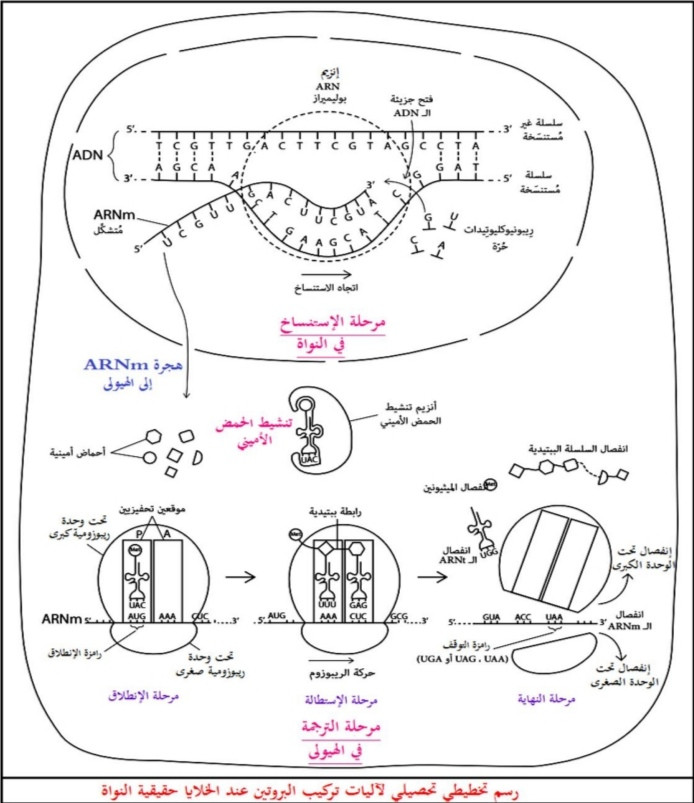 إنزيم
ARN
بوليميراز
فتح جزيئة
الـ ADN
سلسلة غير
مُستنسَخة
5' 3'
T C G T T G A C T T C G T A G C C T A
ADN
A G C A A C T G A A G C A T C G G A T
3' 5'
سلسلة
مُستنسَخة
ARNm
مُتشكّل
U C G U U G A C U U C G U A G
3'
5'
G U C A
ريبونيوكليوتيدات
حُرّة
اتجاه الاستنساخ
مرحلة الإستنساخ
في النواة
هجرة ARNm
إلى الهيولى
تنشيط الحمض
الأميني
UAC
أنزيم تنشيط
الحمض الأميني
أحماض أمينية
انفصال السلسلة الببتيدية
إنفصال الميثيونين
Met
موقعين تحفيزيين
P A
تحت وحدة
ريبوزومية كبرى
Met
UAC
ARNm 5' AUG AAA CUC 3'
رامزة الإنطلاق
تحت وحدة
ريبوزومية صغرى
مرحلة الإنطلاق
رابطة ببتيدية
Met
UUU GAG
5' AUG AAA CUC GCG 3'
حركة الريبوزوم
مرحلة الاستطالة
انفصال
الـ ARNt
UGG
إنفصال تحت
الوحدة الكبرى
5' GUA ACC UAA 3'
انفصال
الـ ARNm
رامزة التوقف
(UGA أو UAG ، UAA)
إنفصال تحت
الوحدة الصغرى
مرحلة النهاية
مرحلة الترجمة
في الهيولى
رسم تخطيطي تحصيلي لآليات تركيب البروتين عند الخلايا حقيقية النواة